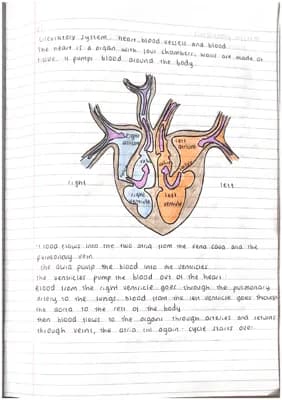 Circulatory System: heart, blood vessels and blood
The heart is a organ with four chambers, walls are made of
tissue, it pumps blood around the body.
right
atrium
left
atrium
right
left
right
ventricle
left
ventricle
blood flows into the two atria from the vena cava and the
pulmonary vein
the atria pump the blood into the ventricles
the ventricles pump the blood out of the heart
Blood from the right ventricle goes through the pulmonary
artery to the lungs. blood from the left ventricle goes through
the aorta to the rest of the body
then blood flows to the organs through arteries and returns
through veins, the atria again cycle starts over